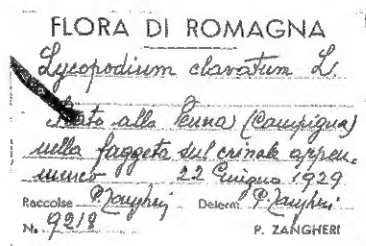 FLORA DI ROMAGNA
Lycopodium clavatum L.
alla Lama (Campigna)
nella faggeta sul crinale appen.
ninico 22 Giugno 1929
Raccolse P. Zangheri Determ. P. Zangheri
N. 9218
P. ZANGHERI